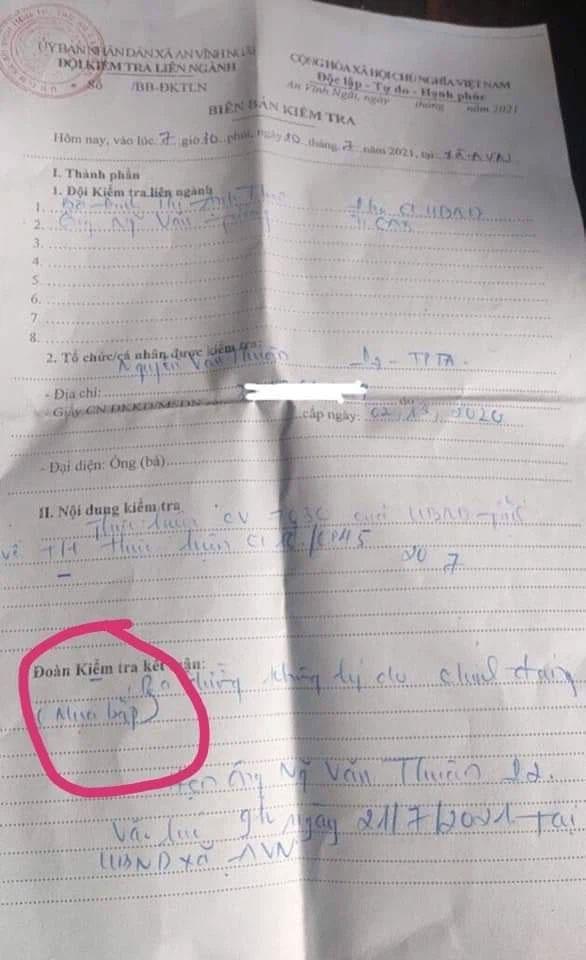 ỦY BAN NHÂN DÂN XÃ AN VĨNH NGÃI
ĐỘI KIỂM TRA LIÊN NGÀNH
Số /BB-ĐKTLN
CỘNG HÒA XÃ HỘI CHỦ NGHĨA VIỆT NAM
Độc lập - Tự do - Hạnh phúc
An Vĩnh Ngãi, ngày tháng năm 2021
BIÊN BẢN KIỂM TRA
Hôm nay, vào lúc 7 giờ 10 phút, ngày 20 tháng 7 năm 2021, tại xã AVN
I. Thành phần
1. Đội Kiểm tra liên ngành
1. Bà Đinh Thị
2. Ông Ng̃ Văn
3.
4.
5.
6.
7.
8.
2. Tổ chức/cá nhân được kiểm tra:
Nguyễn Văn Thuận - TPTA
- Địa chỉ:
- Giấy CN ĐKKD/MSDN cấp ngày: 2020
- Đại diện: Ông (bà)
II. Nội dung kiểm tra
Thực hiện CV UBND
về thực hiện CT
Đoàn Kiểm tra kết luận:
Ra đường không lý do chính đáng
(Mua bắp)
ông Ng̃ Văn Thuận
Vào lúc 9h ngày 21/7/2021 tại
UBND xã AVN